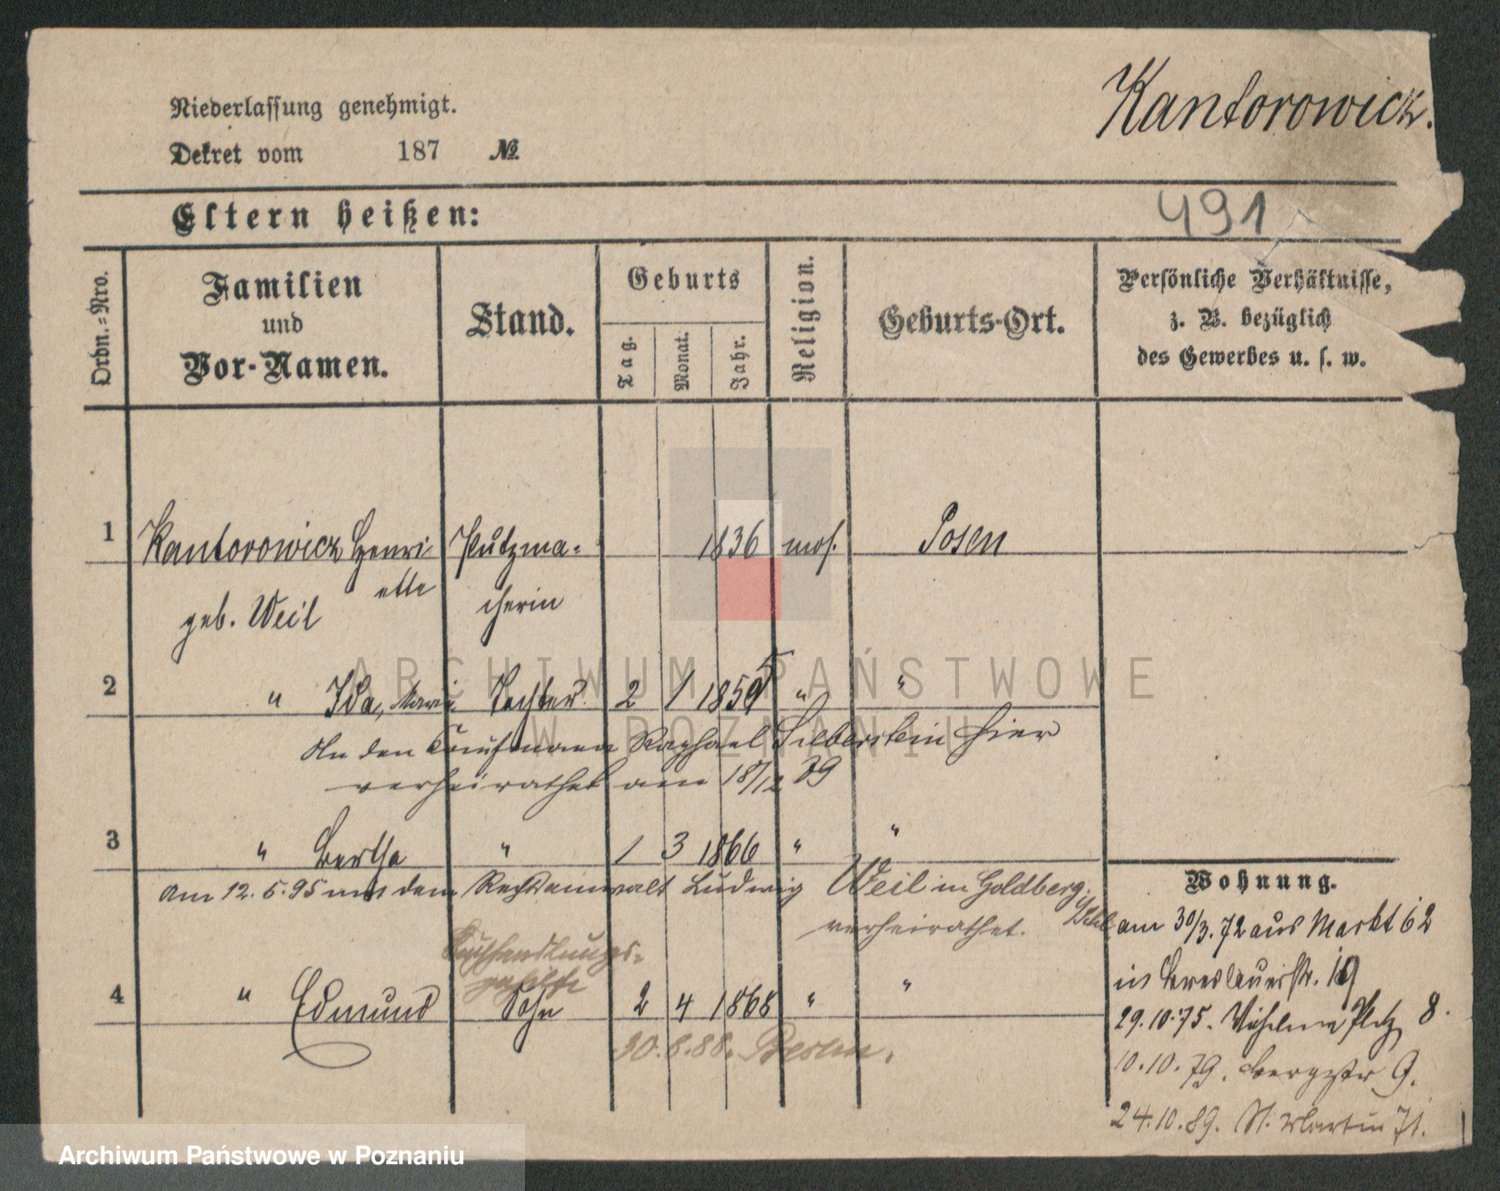 Niederlassung genehmigt.
Kantorowicz.
Dekret vom 187 №
Eltern heißen:
491
Ordn.-Nro.
Familien
und
Vor-Namen.
Stand.
Geburts
Tag.
Monat.
Jahr.
Religion.
Geburts-Ort.
Persönliche Verhältnisse,
z. B. bezüglich
des Gewerbes u. s. w.
1 Kantorowicz Henri- Putzma- 1836 mos. Posen
ette
geb. Weil cherin
2 " Ida, Tochter 2 1 " "
An den Kaufmann Raphael Silberstein hier
verheirathet am 18/12 89
3 " Bertha " 1 3 1866 " "
am 12.5.95 mit dem Rechtsanwalt Ludwig Weil in Goldberg
verheirathet.
Buchhandlungs-
gehilfe
4 " Edmund Sohn 2 4 1868 " "
Berlin.
Wohnung.
am 30/3. 72 aus Markt 62
in Breslauerstr. 19
29.10.75. Wilhelm Platz 8.
10.10.79. Bergstr 9.
24.10.89. St. Martin 71.
ARCHIWUM PAŃSTWOWE
W POZNANIU
Archiwum Państwowe w Poznaniu